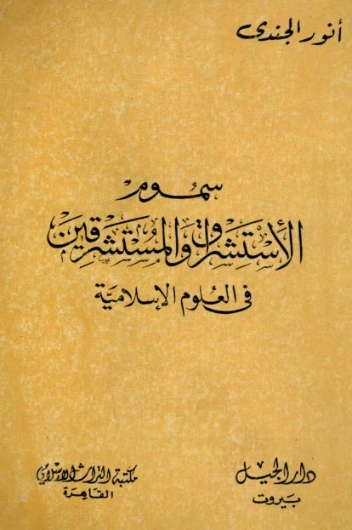 أنور الجندى
سموم
الأستشراق والمستشرقين
فى العلوم الإسلامية
دار الجيل
بيروت
مكتبة التراث الإسلامى
القاهرة